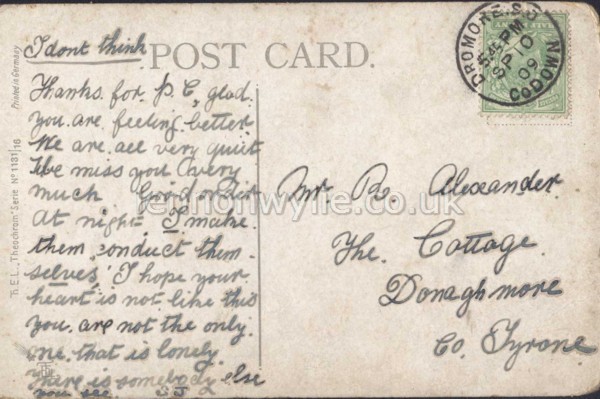 I dont think
POST CARD.
Thanks for P.C, glad
you are feeling better
We are all very quiet
We miss you very
much Good order
at night I make
them conduct them-
selves, I hope your
heart is not like this
you are not the only
one that is lonely
there is somebody else
you see. S J
Mr. Ro. Alexander.
The. Cottage.
Donaghmore
Co. Tyrone
DROMORE. S.O
5.45 PM
SP 10
09
Co DOWN
Printed in Germany
Th. E. L. „Theochrom" Serie No 1131/16